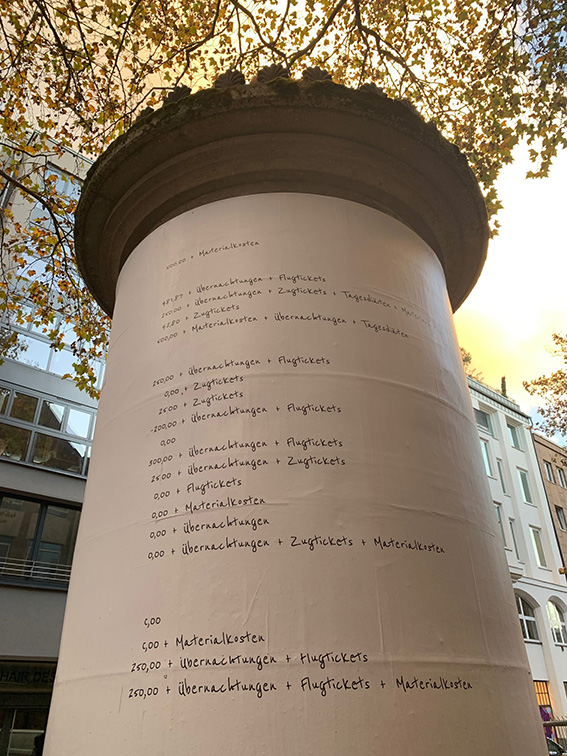 600,00 + Materialkosten
481,87 + Übernachtungen + Flugtickets
240,00 + Übernachtungen + Zugtickets + Tagesdiäten +
42,80 + Zugtickets
600,00 + Materialkosten + Übernachtungen + Tagesdiäten
250,00 + Übernachtungen + Flugtickets
0,00 + Zugtickets
25,00 + Zugtickets
-200,00 + Übernachtungen + Flugtickets
0,00
300,00 + Übernachtungen + Flugtickets
25,00 + Übernachtungen + Zugtickets
0,00 + Flugtickets
0,00 + Materialkosten
0,00 + Übernachtungen
0,00 + Übernachtungen + Zugtickets + Materialkosten
0,00
0,00 + Materialkosten
250,00 + Übernachtungen + Flugtickets
250,00 + Übernachtungen + Flugtickets + Materialkosten
HAIR DES